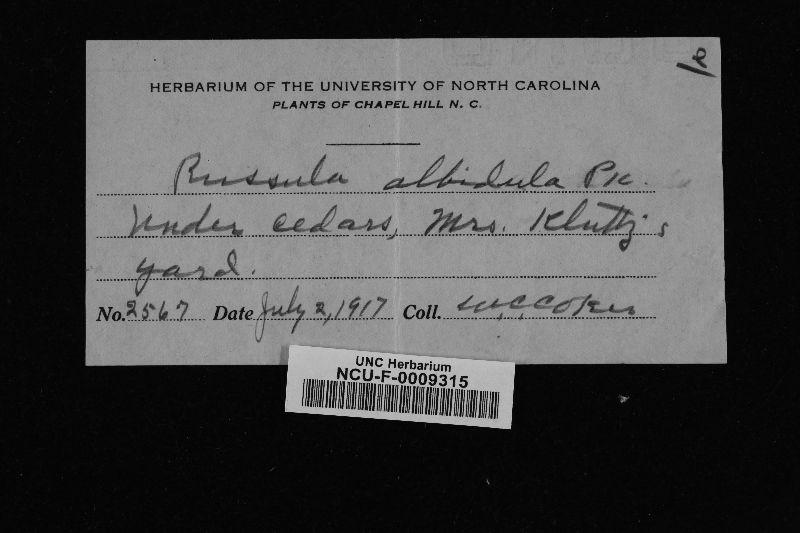 HERBARIUM OF THE UNIVERSITY OF NORTH CAROLINA
PLANTS OF CHAPEL HILL N. C.
Russula albidula Pk.
Under cedars, Mrs. Kluttz's
yard.
No. 2567 Date July 2, 1917 Coll. W.C. Coker
UNC Herbarium
NCU-F-0009315